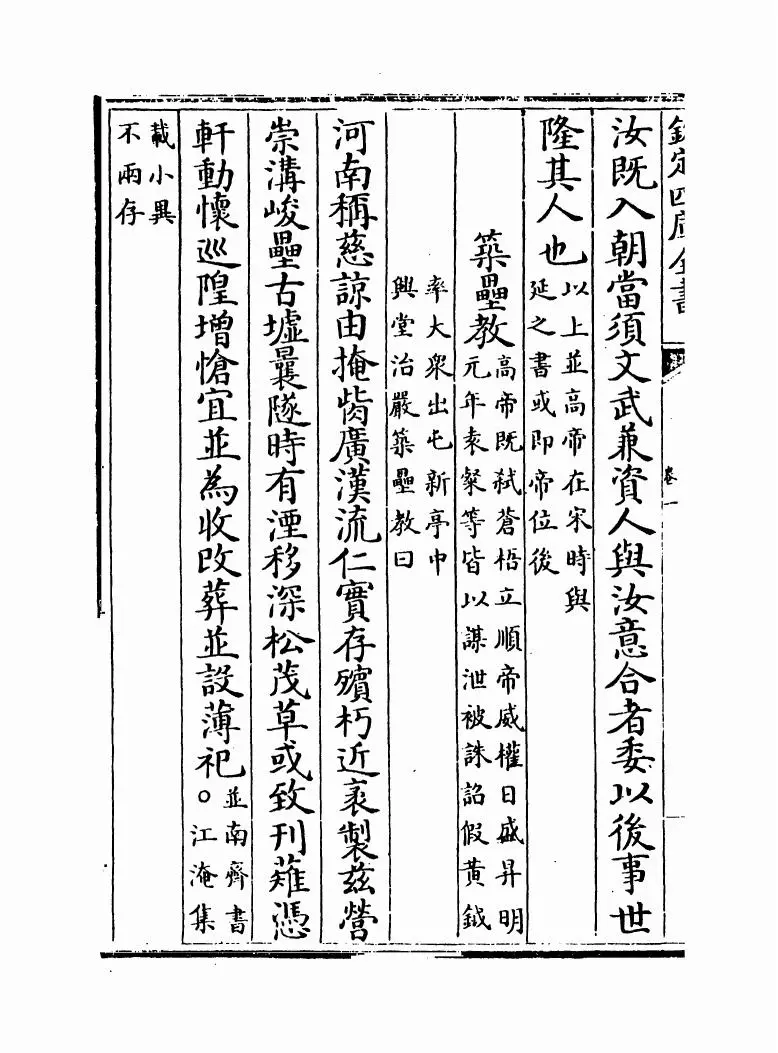 欽定四庫全書
卷一
汝既入朝當須文武兼資人與汝意合者委以後事世
隆其人也以上並高帝在宋時與
延之書或即帝位後
築壘教高帝既弑蒼梧立順帝威權日盛昇明
元年袁粲等皆以謀泄被誅詔假黄鉞
率大衆出屯新亭中
興堂治嚴築壘教曰
河南稱慈諒由掩胔廣漢流仁實存殯朽近袤製茲營
崇溝峻壘古墟曩隧時有湮移深松茂草或致刊薙憑
軒動懷巡隍增愴宜並為收改葬並設薄祀。並南齊書
江淹集
載小異
不兩存